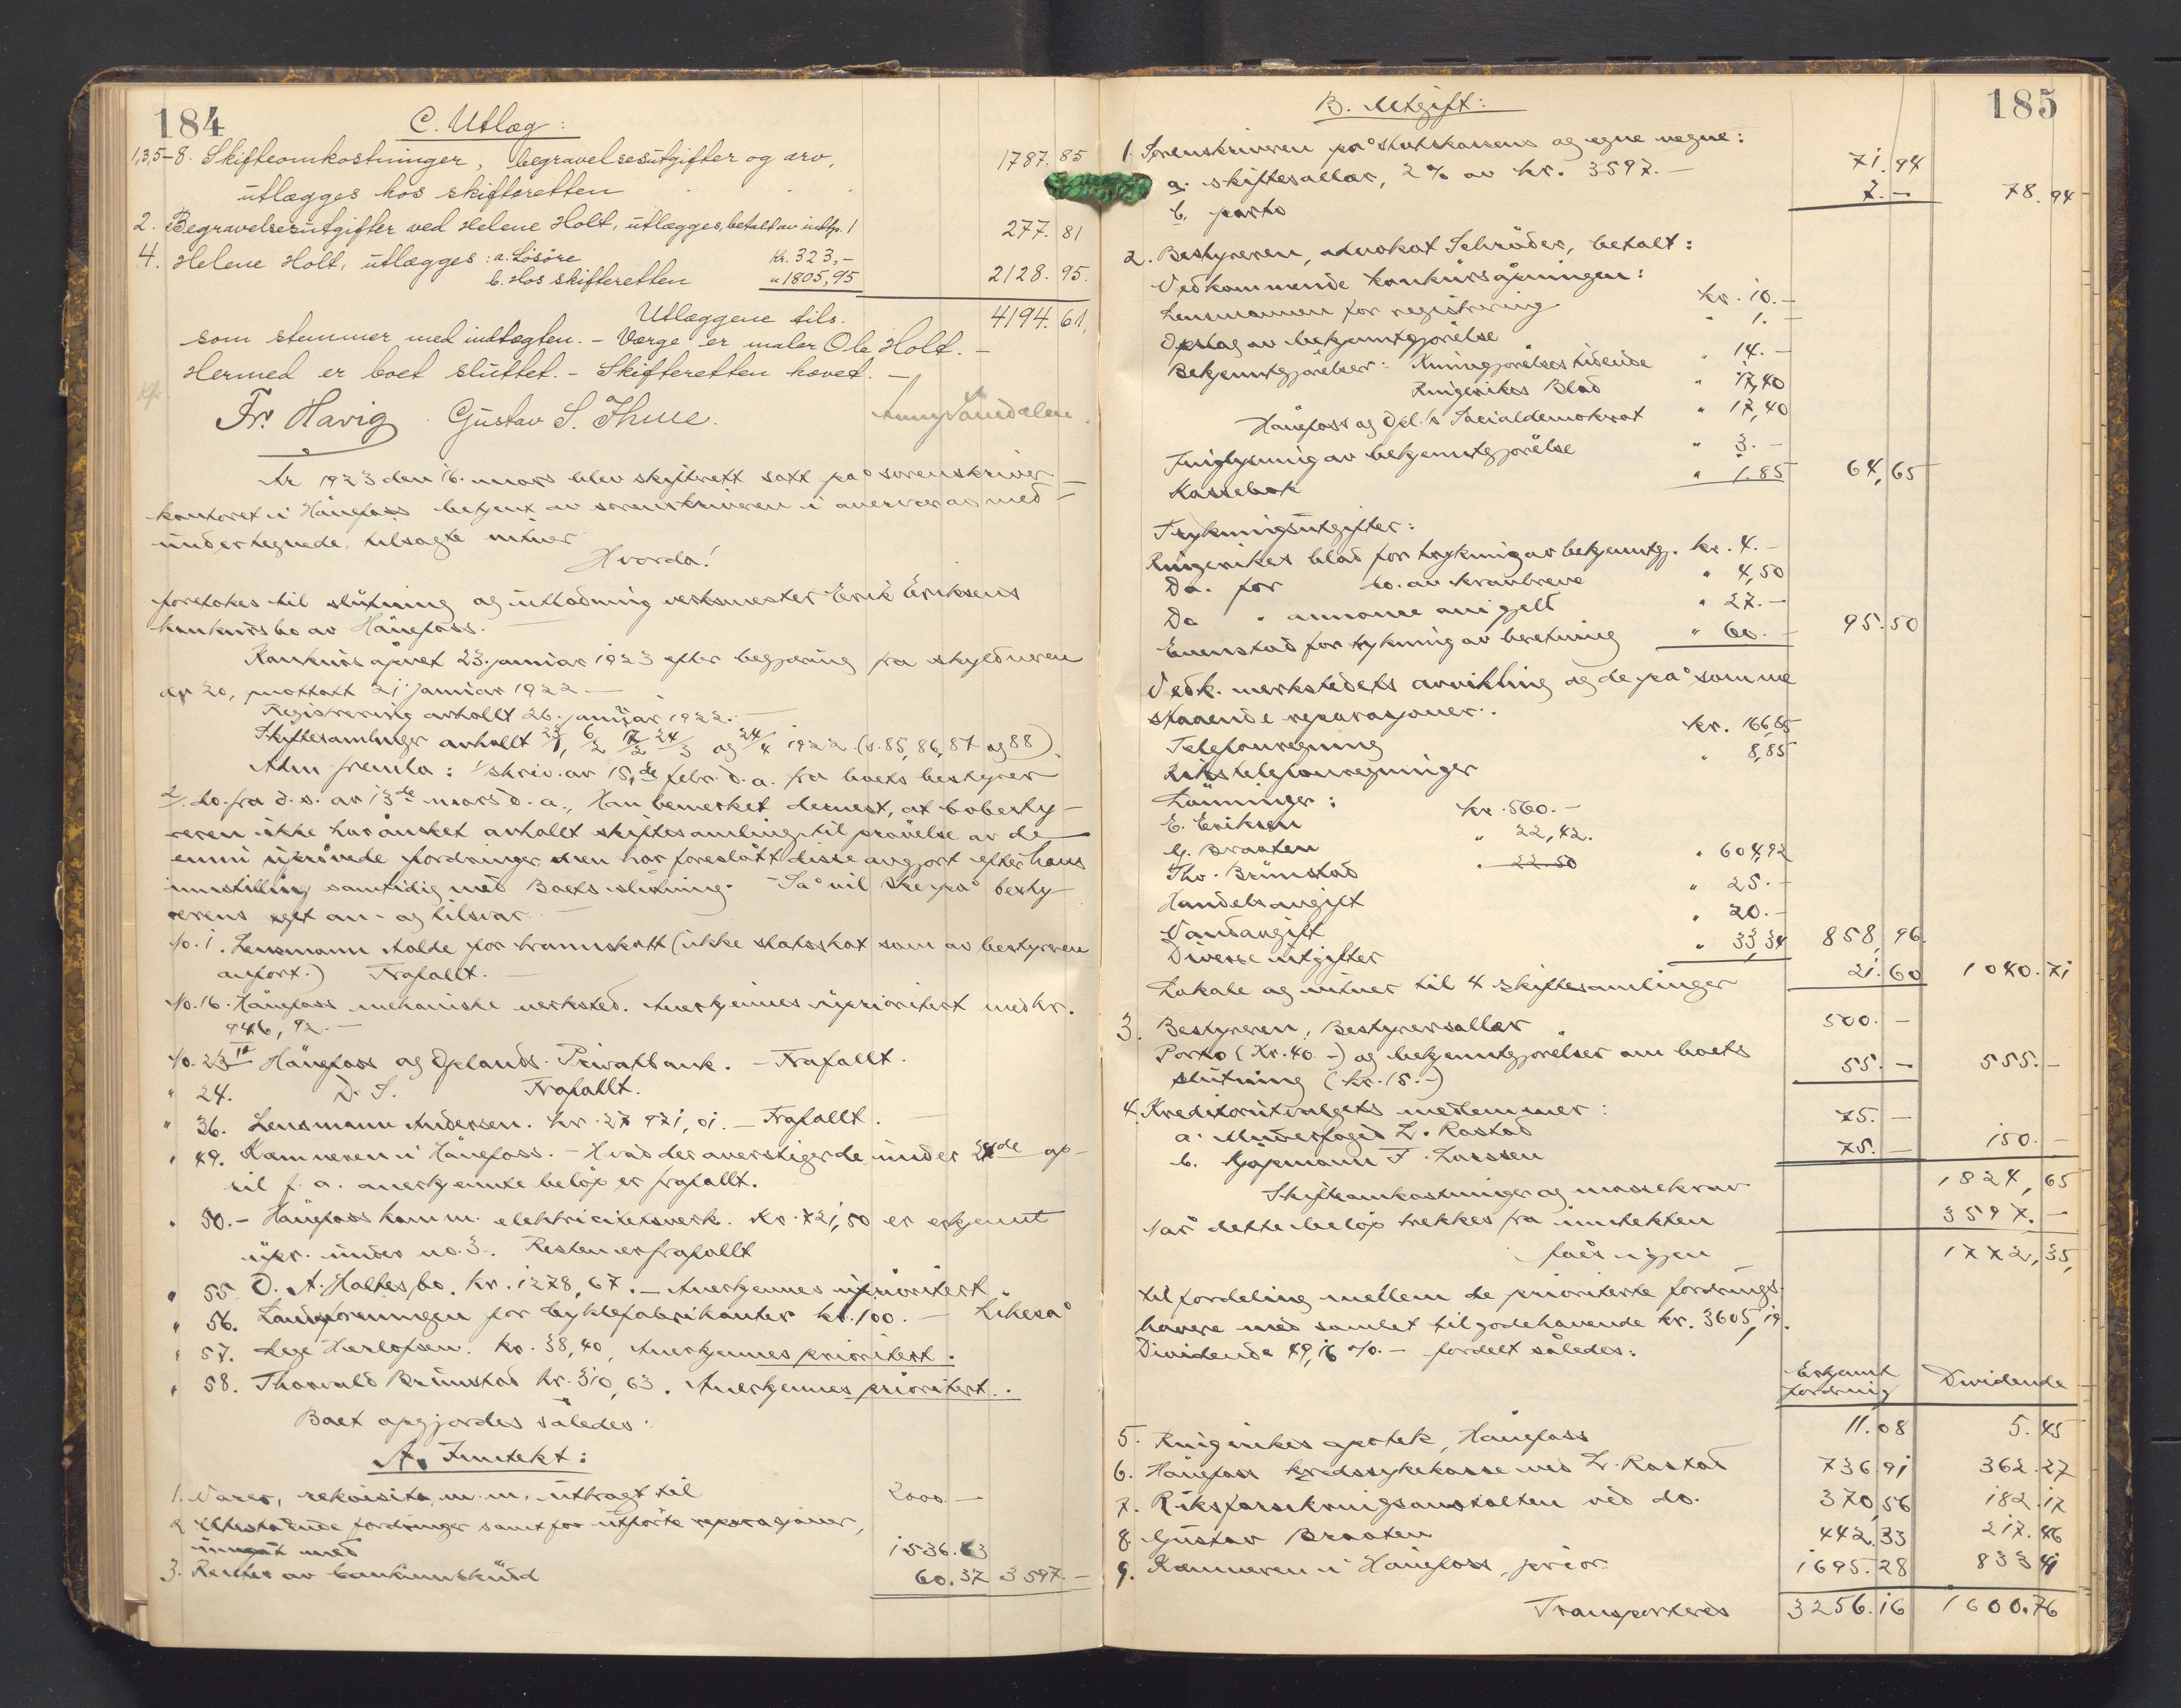 184
C. Utlæg:
1,3,5-8. Skifteomkostninger, begravelsesutgifter og arv, 1787. 85
utlægges hos skifteretten
2. Begravelsesutgifter ved Helene Holt, utlægges, betalt av indtp. 1 277. 81
4. Helene Holt, utlægges: a. Lösöre kr. 323,-
b. Hos skifteretten " 1805,95 2128. 95.
Utlæggene tils. 4194. 61,
som stemmer med indtægten. - Værge er maler Ole Holt. -
Hermed er boet sluttet. - Skifteretten hævet. -
Fr. Havig Gustav S. Thue.
År 1923 den 16. mars blev skifterett satt på sorenskriver-
kontoret i Hönefoss betjent av sorenskriveren i overvær av med-
undertegnede, tilsagte vitner
Hvorda!
foretokes til slutning og utlodning verksmester Erik Eriksens
konkursbo av Hönefoss.
Konkurs åpnet 23. januar 1923 efter begjæring fra skyldneren
av 20, mottatt 21 januar 1922 -
Registrering avholt 26. januar 1922. -
Skiftesamlinger avholt 23/1, 6/2 17/2 24/3 og 24/4 1922 (s. 85, 86, 87 og 88).
Adm fremla: 1/ skriv. av 15de febr. d. a. fra boets bestyrer
2/. do. fra d. s. av 13de mars d. a., Han bemerket dernest, at bobesty-
reren ikke har önsket avholt skiftesamling til prövelse av de
ennu uprövede fordringer men har foreslått disse avgjort efter hans
innstilling samtidig med Boets slutning. Så vil skje på besty-
rerens eget an- og tilsvar. -
No. 1. Lensmann Aalde for brannskatt (ikke statsskat som av bestyreren
anfört.) Frafallt. -
No. 16. Hönefoss mekaniske verksted. Anerkjennes uprioritert med kr.
946, 92. -
No. 23 Hönefoss og Oplands Privatbank. - Frafallt.
" 24. D. S. Frafallt.
" 36. Lensmann Andersen. kr. 27 971, 01. - Frafallt.
" 49. Kæmneren i Hönefoss. - Hvad der overstiger de under op-
til f. a. anerkjennte belöp er frafallt.
" 50. - Hönefoss komm. elektricitetsverk. Kr. 721,50 er erkjent
upr. under no. 3. Resten er frafallt
" 55 O. A. Haltes bo. kr. 1278, 67. - Anerkjennes uprioritert
" 56. Landsforeningen for cyklefabrikanter kr. 100. - Likeså
" 57. Læge Herlofsen. kr. 38,40, Anerkjennes prioritert.
" 58. Thorvald Brunstad kr. 310, 63. Anerkjennes prioritert.
Boet opgjordes således:
A. Inntekt:
1. Varer, rekvisita m. m. utbragt til 2000. -
2 Utestaaende fordringer samt for utförte reparasjoner,
inngåt med 1536. 63
3. Renter av bankinnskudd 60. 37 3597. -
185
B. Utgift:
1. Sorenskriveren på statskassens og egne vegne:
a. skiftesallær, 2 % av kr. 3597. - 71. 94
b. porto 7. - 78. 94
2. Bestyreren, advokat Schröder, betalt:
Vedkommende konkursåpningen:
Lensmannen for registrering kr. 10. -
Opslag av bekjentgjörelse " 1. -
Bekjentgjörelser: Kunngjörelsestidende " 14. -
Ringerikes Blad " 17,40
Hönefoss og Opl.'s Socialdemokrat " 17,40
Tinglysning av bekjentgjörelse " 3. -
Kassebok " 1.85 64, 65
Trykningsutgifter:
Ringerikes blad for trykning av bekjentg. kr. 4. -
Do. for do. av kravbreve " 4,50
Do " annonce om gjeld " 27. -
Evenstad for trykning av beretning " 60. - 95. 50
Vedk. verkstedets avvikling og de på somme
staaende reparasjoner.
Telefonregning kr. 166,85
Rikstelefonregninger " 8,85
Lönninger:
E. Eriksen kr. 560. -
G. Braaten " 22,42.
Thv. Brunstad " 22.50 " 604,92
Handelsavgift " 25. -
Vandavgift " 20. -
Diverse utgifter " 33,34 858, 96.
Lokale og vitner til 4 skiftesamlinger 21. 60 1040. 71
3. Bestyreren, Bestyrersallær 500. -
Porto (Kr. 40 -) og bekjentgjörelser om boets
slutning (kr. 15. -) 55. - 555. -
4. Kreditorutvalgets medlemmer:
a. Underfoged L. Rastad 75. -
b. Kjöpmann T. Larssen 75. - 150. -
Skifteomkostninger og massekrav 1824, 65
Når dette belöp trekkes fra inntekten 3597. -
fåes igjen 1772, 35,
til fordeling mellem de prioriterte fordrings-
havere med samlet tilgodehavende kr. 3605, 19.
Dividende 49,16 %. - fordelt således:
Erkjent fordring Dividende
5. Ringerikes apotek, Hönefoss 11. 08 5. 45
6. Hönefoss kredssykekasse ved L. Rastad 736 91 362. 27
7. Riksforsikringsanstalten ved do. 370, 56 182. 17
8. Gustav Braaten 442. 33 217. 46
9. Kæmneren i Hönefoss, prior. 1695. 28 833 41
Transporteres 3256. 16 1600. 76